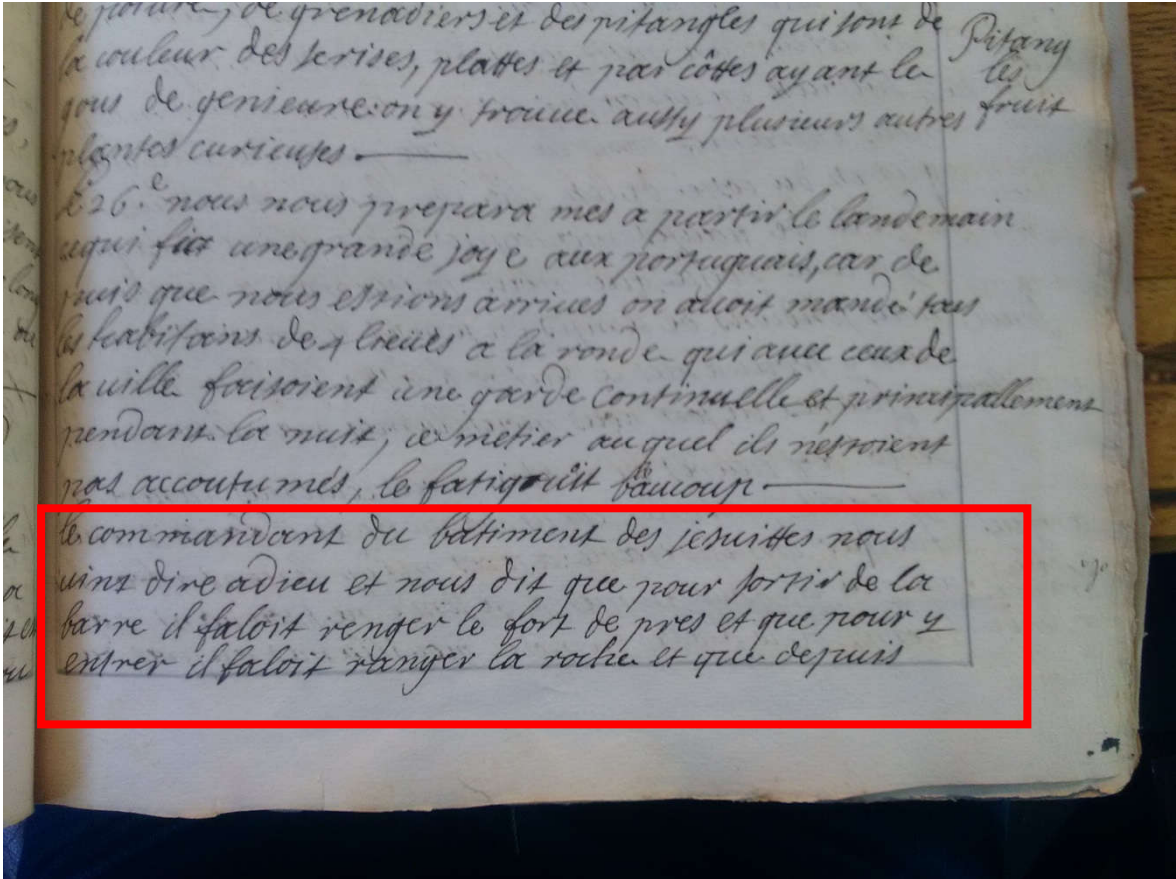 de poivre, de grenadiers et des pitangles qui sont de
la couleur des serises, plattes et par côttes ayant le
gous de genieure: on y trouue aussy plusieurs autres
plantes curieuses.
Pitang
les
fruit
Le 26.e nous nous prepara mes a partir le landemain
ce qui fut une grande joye aux portuguais, car de
puis que nous estions arriues on auoit mandé tous
les habitans de 4 lieües a la ronde qui auec ceux de
la uille faisoient une garde continuelle et principallement
pendant la nuit, ce metier au quel ils n'estoient
pas accoutumés, le fatigoüit baucoup
le commandant du batiment des jesuittes nous
uint dire adieu et nous dit que pour sortir de la
barre il faloit renger le fort de pres et que pour y
entrer il faloit ranger la roche et que depuis